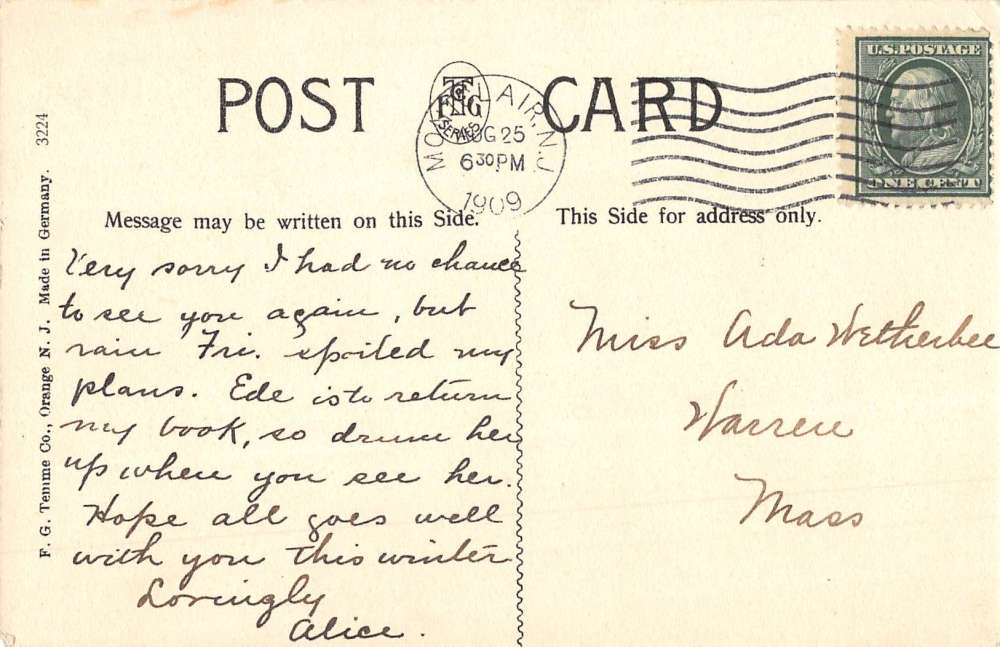 POST CARD
F T G
SERIES
MONTCLAIR, N.J.
AUG 25
6 30 PM
1909
U.S. POSTAGE
ONE CENT
3224
F. G. Temme Co., Orange N. J. Made in Germany.
Message may be written on this Side.
Very sorry I had no chance
to see you again, but
rain Fri. spoiled my
plans. Ede is to return
my book, so drum her
up when you see her.
Hope all goes well
with you this winter
Lovingly
Alice.
This Side for address only.
Miss Ada Wetherbee
Warren
Mass